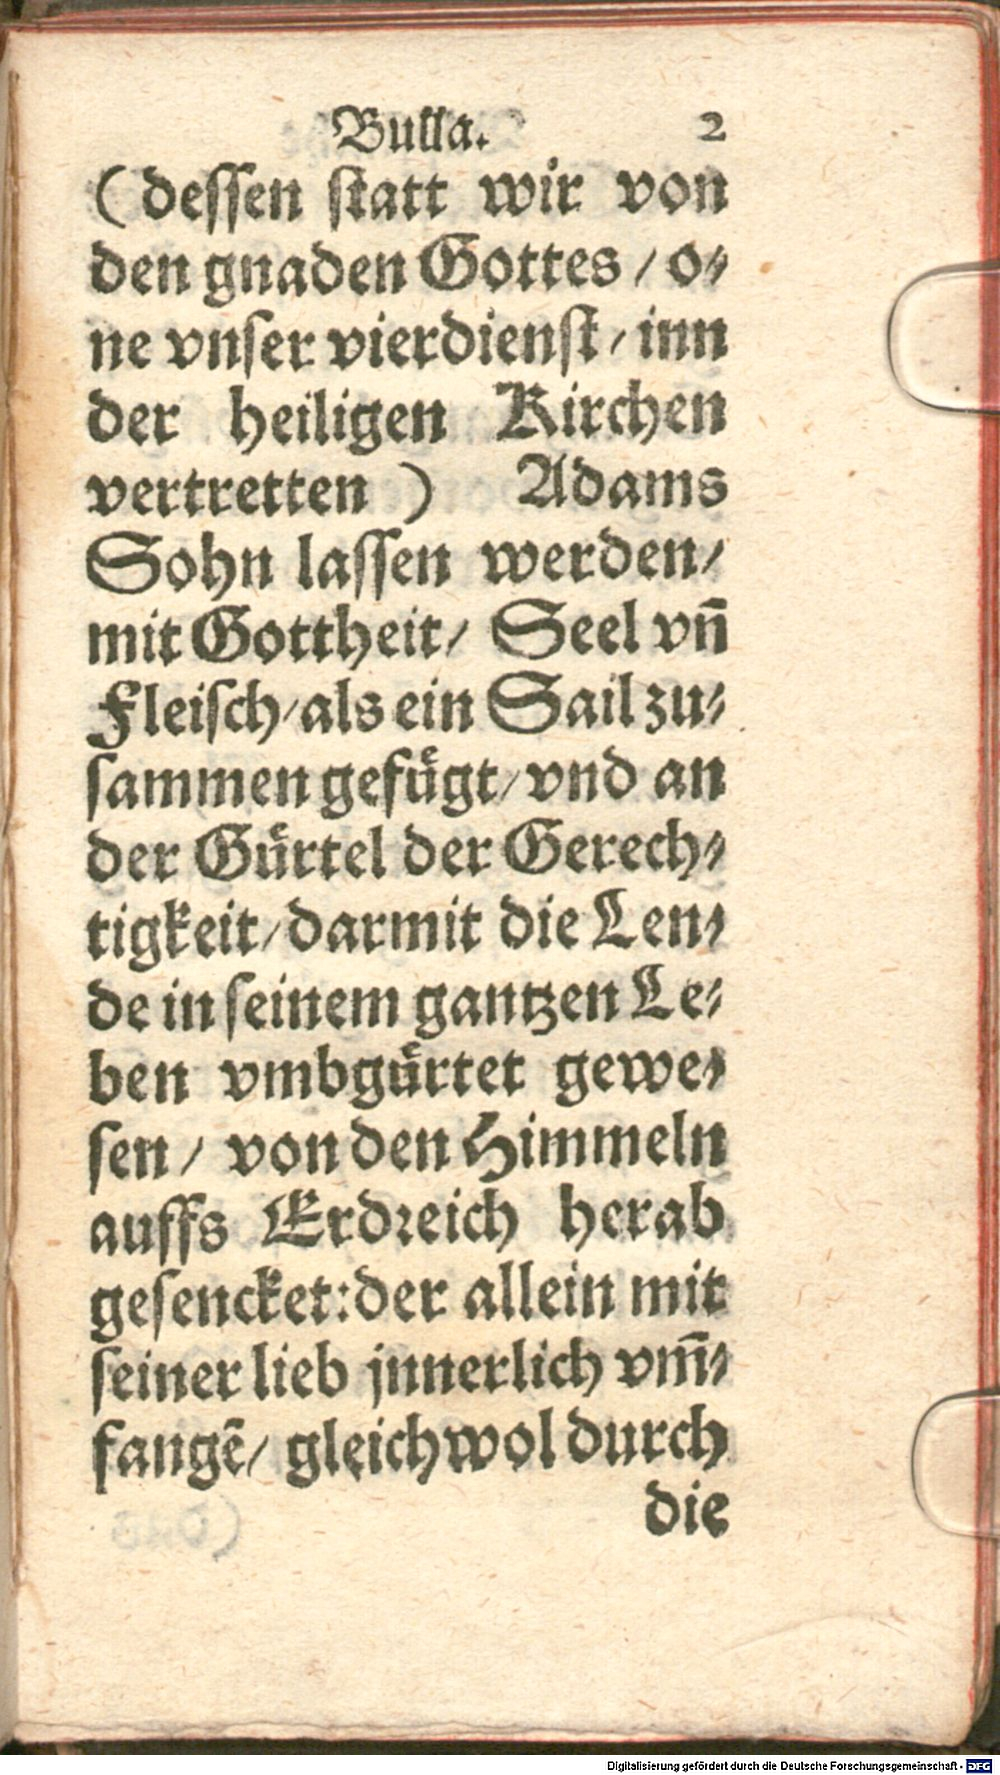 Bulla. 2
(dessen statt wir von
den gnaden Gottes / o⸗
ne vnser vierdienst / inn
der heiligen Kirchen
vertretten ) Adams
Sohn lassen werden /
mit Gottheit / Seel vñ
Fleisch / als ein Sail zu⸗
sammen gefuͤgt / vnd an
der Guͤrtel der Gerech⸗
tigkeit / darmit die Len⸗
de in seinem gantzen Le⸗
ben vmbguͤrtet gewe⸗
sen / von den Himmeln
auffs Erdꝛeich herab
gesencket: der allein mit
seiner lieb jnnerlich vm̃⸗
fangẽ / gleichwol durch
die
Digitalisierung gefördert durch die Deutsche Forschungsgemeinschaft - DFG